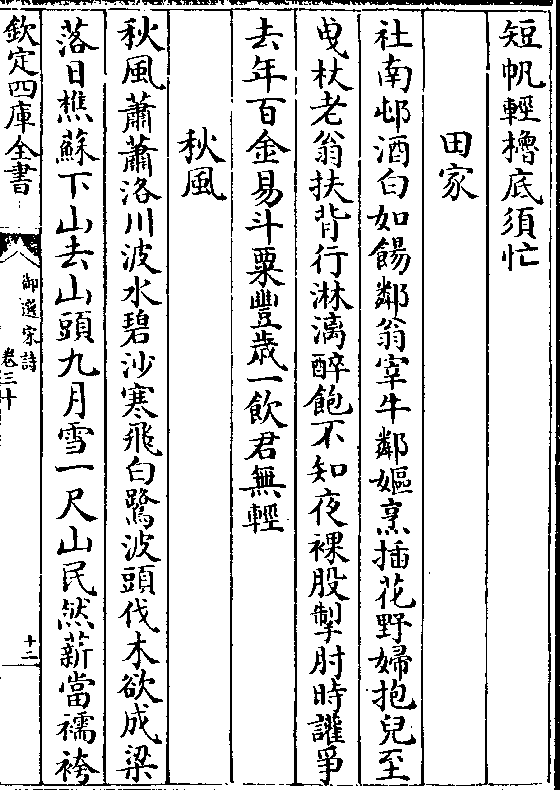 短帆輕櫓底須忙
田家
社南邨酒白如餳鄰翁宰牛鄰嫗烹插花野婦抱兒至
曵杖老翁扶背行淋漓醉飽不知夜裸股掣肘時讙爭
去年百金易斗粟豐歳一飲君無輕
秋風
秋風蕭蕭洛川波水碧沙寒飛白鷺波頭伐木欲成梁
落日樵蘇下山去山頭九月雪一尺山民然薪當襦袴
欽定四庫全書
御選宋詩
卷三十
十二